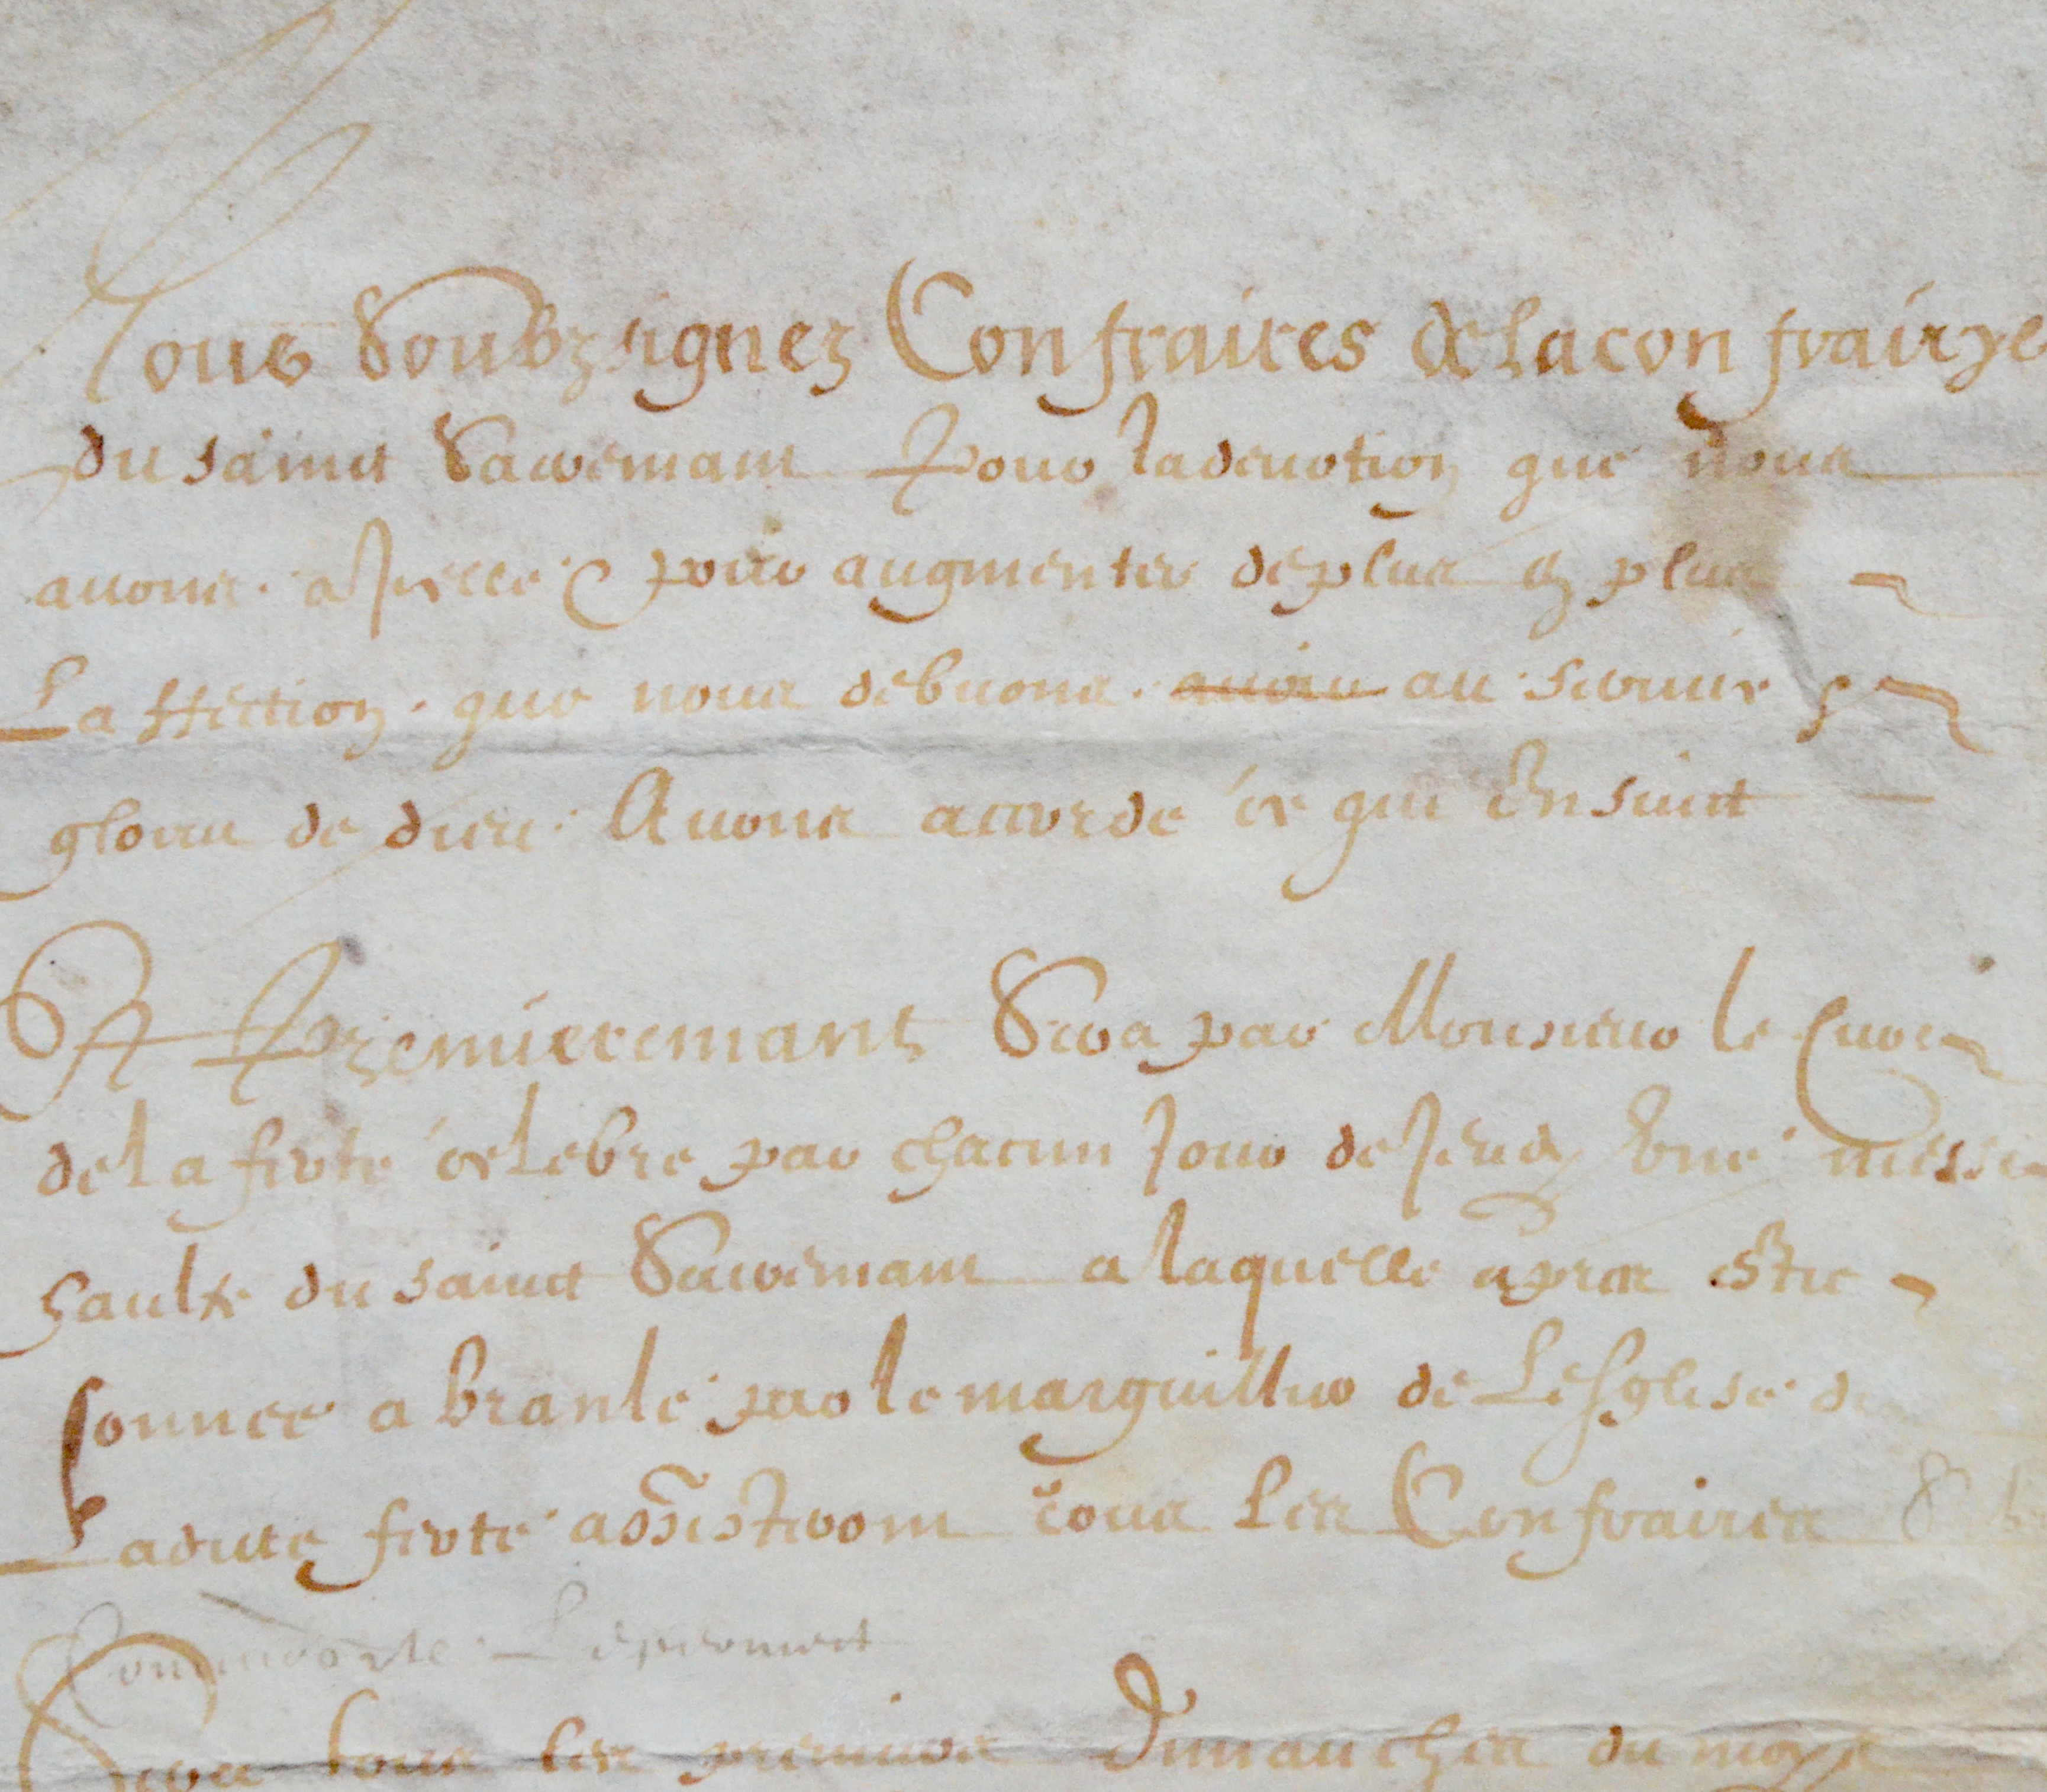 Nous Soubzsignez Confraires de la confrairye
du sainct Sacremant Pour la devotion que nous
avons a Icelle & pour augmenter de plus en plus
Laffection que nous debvons avoir au service &
gloire de dieu Avons accorde ce que Ensuict
Et Premieremant Sera par Monsieur le Cure
de la ferte celebre par chacun Jour de Jeudy Une messe
haulte du sainct Sacremant a laquelle apres estre
sonnee a branle par le marguillier de Lesglise de
Ladicte ferte assisteront tous Les Confraires &
Sera tous les premiers Dimanches du moys